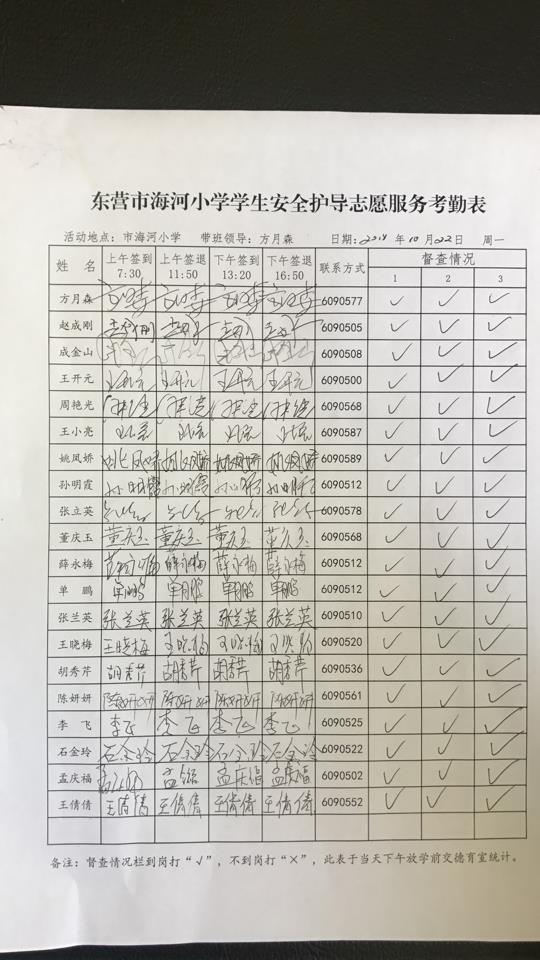 东营市海河小学学生安全护导志愿服务考勤表
活动地点：市海河小学 带班领导：方月森 日期：2018 年 10 月 22日 周一
姓 名 上午签到 7:30 上午签退 11:50 下午签到 13:20 下午签退 16:50 联系方式 督查情况
1 2 3
方月森 6090577 ✓ ✓ ✓
赵成刚 6090505 ✓ ✓ ✓
成金山 6090508 ✓ ✓ ✓
王开元 王开元 王开元 王开元 王开元 6090500 ✓ ✓ ✓
周艳光 6090568 ✓ ✓ ✓
王小亮 6090587 ✓ ✓ ✓
姚凤娇 姚凤娇 姚凤娇 姚凤娇 姚凤娇 6090589 ✓ ✓ ✓
孙明霞 孙明霞 孙明霞 孙明霞 孙明霞 6090512 ✓ ✓ ✓
张立英 6090578 ✓ ✓ ✓
董庆玉 董庆玉 董庆玉 董庆玉 董庆玉 6090568 ✓ ✓ ✓
薛永梅 薛永梅 薛永梅 薛永梅 薛永梅 6090512 ✓ ✓ ✓
单 鹏 单鹏 单鹏 单鹏 单鹏 6090512 ✓ ✓ ✓
张兰英 张兰英 张兰英 张兰英 张兰英 6090510 ✓ ✓ ✓
王晓梅 王晓梅 王晓梅 王晓梅 王晓梅 6090520 ✓ ✓ ✓
胡秀芹 胡秀芹 胡秀芹 胡秀芹 胡秀芹 6090536 ✓ ✓ ✓
陈妍妍 陈妍妍 陈妍妍 陈妍妍 陈妍妍 6090561 ✓ ✓ ✓
李 飞 李飞 李飞 李飞 李飞 6090525 ✓ ✓ ✓
石金玲 石金玲 石金玲 石金玲 石金玲 6090522 ✓ ✓ ✓
孟庆福 孟庆福 孟庆福 6090502 ✓ ✓ ✓
王倩倩 王倩倩 王倩倩 王倩倩 王倩倩 6090552 ✓ ✓ ✓
备注：督查情况栏到岗打“√”，不到岗打“×”，此表于当天下午放学前交德育室统计。